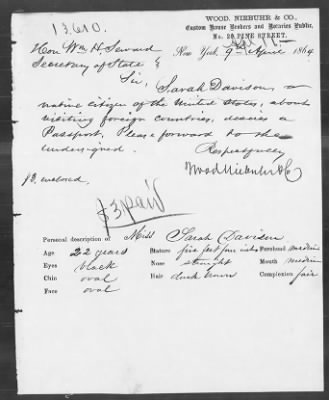 13,610.
WOOD, NIEBUHR & CO.,
Custom House Brokers and Notaries Public,
No. 29 PINE STREET.
New York, 9th April 1864
Hon Wm H. Seward
Secretary of State
Sir,
Sarah Davison, a
native citizen of the United States, about
visiting foreign countries, desires a
Passport, Please forward to the
undersigned.
Respectfully
Wood Niebuhr & Co
$3, enclosed.
$3 paid
Personal description of Miss Sarah Davison
Age 22 years Stature five feet Forehead medium
Eyes black Nose straight Mouth medium
Chin oval Hair dark brown Complexion fair
Face oval